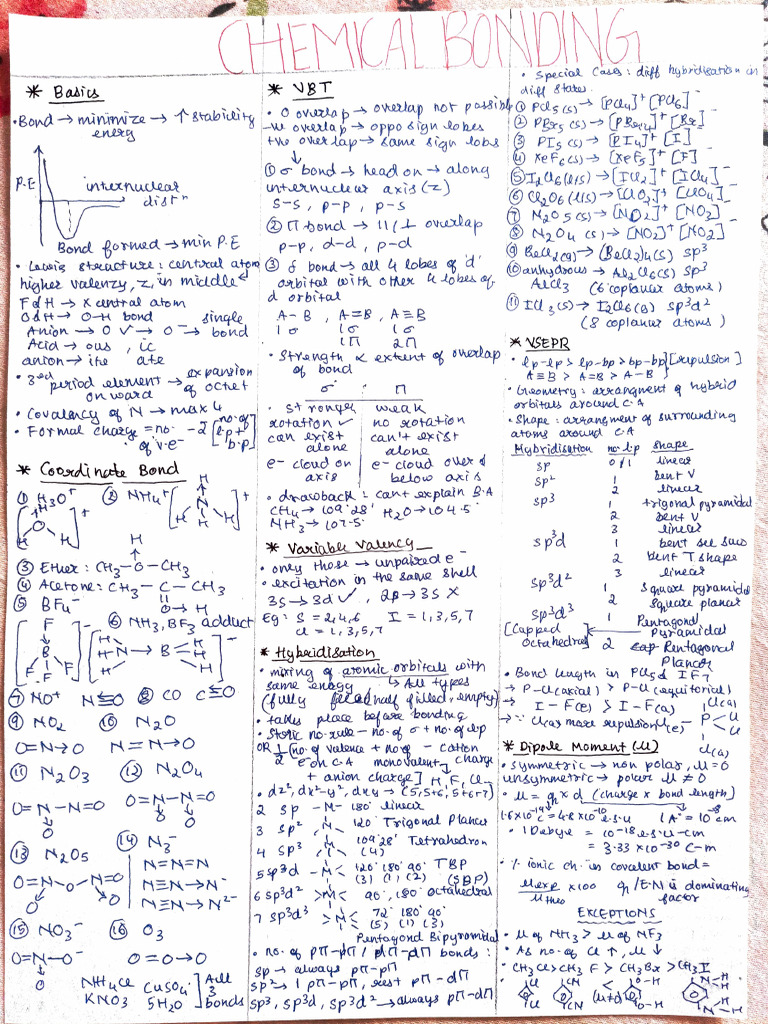 CHEMICAL BONDING
* Basics
• Bond → minimize → ↑ stability
energy
P.E
internuclear
distⁿ
Bond formed → min P.E
• Lewis structure: central atom
higher valency, z, in middle
F & H → x central atom
O & H → O-H bond
Anion → O ✓ → O⁻ → single bond
Acid → ous, ic
anion → ite ate
• 3rd period element → expansion
onward of octet
• Covalency of N → max 4
• Formal charge = no. of v.e⁻ - 2 [no. of l.p + b.p]
* Coordinate Bond
① H₃O⁺ ② NH₄⁺
③ Ether: CH₃-O-CH₃
④ Acetone: CH₃-C-CH₃
O→H
⑤ BF₄⁻
⑥ NH₃, BF₃ adduct
⑦ NO⁺ N≡O ⑧ CO C≡O
⑨ NO₂ ⑩ N₂O
O=N→O N=N→O
⑪ N₂O₃ ⑫ N₂O₄
O=N-N=O O=N-N=O
⑬ N₂O₅ ⑭ N₃⁻
O=N-O-N=O N=N=N
N≡N→N⁻
N≡N→N²⁻
⑮ NO₃⁻ ⑯ O₃
O=N-O⁻ O=O→O
NH₄Cl CuSO₄ All
KNO₃ 5H₂O 3 bonds
* VBT
• O overlap → overlap not possible
-ve overlap → oppo sign lobes
+ve overlap → same sign lobs
① σ bond → head on → along
internuclear axis (z)
s-s, p-p, p-s
② Π bond → 11/⊥ overlap
p-p, d-d, p-d
③ δ bond → all 4 lobes of 'd'
orbital with other 4 lobes of
d orbital
A-B, A=B, A≡B
1σ 1σ 1σ
1Π 2Π
• Strength ∝ extent of overlap
of bond
σ : Π
• stronger weak
rotation ✓ no rotation
can exist can't exist
alone alone
e⁻ cloud on e⁻ cloud over &
axis below axis
• drawback: can't explain B.A
CH₄ → 109°28' H₂O → 104.5°
NH₃ → 107.5°
* Variable Valency
• only those → unpaired e⁻
• excitation in the same shell
3s → 3d ✓, 2p → 3s X
Eg: S = 2,4,6 I = 1,3,5,7
Cl = 1,3,5,7
* Hybridisation
• mixing of atomic orbitals with
same energy → All types
(fully filled, half filled, empty)
• takes place before bonding
• Steric no. rule - no. of σ + no. of l.p
OR 1/2 [no. of valence + no. of - cation
e⁻ on C.A monovalent charge
+ anion charge] H, F, Cl
• dz², dx²-y², dxy → (5, 5+6, 5+6+7)
2 sp -M- 180° linear
3 sp² 120° Trigonal Planar
4 sp³ 109°28' Tetrahedron
(4)
5 sp³d 120° 180° 90° TBP
(3) (1) (2) (SBP)
6 sp³d² >M< 90°, 180° octahedral
7 sp³d³ >M< 72° 180° 90°
(5) (1) (3)
Pentagonal Bipyramidal
• no. of pΠ-pΠ / pΠ-dΠ bonds:
sp → always pΠ-pΠ
sp² → 1 pΠ-pΠ, rest pΠ-dΠ
sp³, sp³d, sp³d² → always pΠ-dΠ
• Special Cases: diff hybridisation in
diff states.
① PCl₅(s) → [PCl₄]⁺ [PCl₆]⁻
② PBr₅(s) → [PBr₄]⁺ [Br]⁻
③ PI₅(s) → [PI₄]⁺ [I]⁻
④ XeF₆(s) → [XeF₅]⁺ [F]⁻
⑤ I₂Cl₆(l/s) → [ICl₂]⁺ [ICl₄]⁻
⑥ Cl₂O₆(l/s) → [ClO₂]⁺ [ClO₄]⁻
⑦ N₂O₅(s) → [NO₂]⁺ [NO₃]⁻
⑧ N₂O₄(s) → [NO₂]⁺ [NO₂]⁻
⑨ BeCl₂(g) → (BeCl₂)₂(s) sp³
⑩ anhydrous → Al₂Cl₆(s) sp³
AlCl₃ (6 coplanar atoms)
⑪ ICl₃(s) → I₂Cl₆(s) sp³d²
(8 coplanar atoms)
* VSEPR
• lp-lp > lp-bp > bp-bp [repulsion]
A≡B > A=B > A-B
• Geometry: arrangment of hybrid
orbitals around C.A
• Shape: arrangment of surrounding
atoms around C.A
Hybridisation no. l.p shape
sp 0/1 linear
sp² 1 bent V
2 linear
sp³ 1 trigonal pyramidal
2 bent V
3 linear
sp³d 1 bent see saw
2 bent T shape
3 linear
sp³d² 1 square pyramidal
2 square planar
sp³d³ 1 Pentagonal
[Capped Pyramidal
octahedral] 2 Pentagonal
Planar
• Bond length in PCl₅ & IF₇
→ P-Cl(axial) > P-Cl(equitorial)
→ I-F(e) > I-F(a)
→ ∵ Cl(a) more repulsion
Cl(a)
Cl(e) - P
Cl
Cl
Cl(a)
* Dipole Moment (μ)
• symmetric → non polar, μ = 0
unsymmetric → polar μ ≠ 0
• μ = q × d (charge × bond length)
1.6×10⁻¹⁹C = 4.8×10⁻¹⁰ e.s.u 1A° = 10⁻⁸ cm
• 1 Debye = 10⁻¹⁸ e.s.u-cm
= 3.33×10⁻³⁰ C-m
• % ionic ch. in covalent bond =
μexp / μtheo × 100 q/E.N is dominating
factor
EXCEPTIONS
• μ of NH₃ > μ of NF₃
• As no. of Cl ↑, μ ↓
• CH₃Cl > CH₃F > CH₃Br > CH₃I
Cl Cl CN CN (μ≠0) O-H O-H N-H H